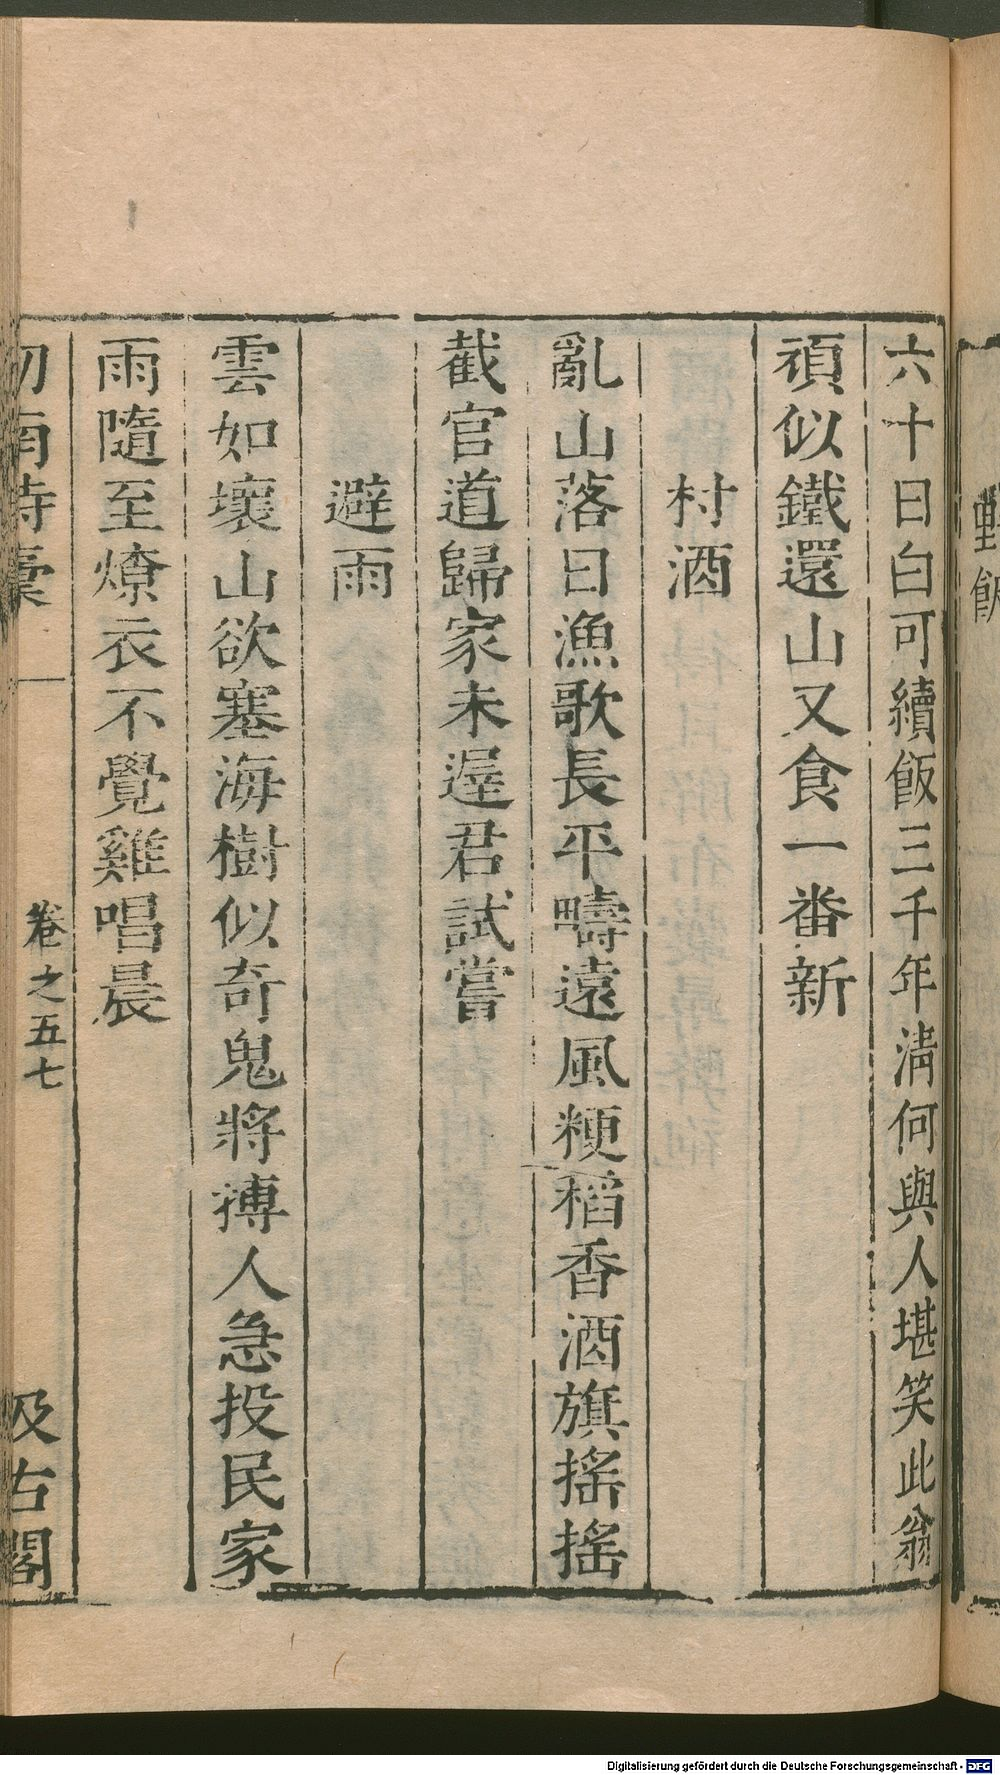 六十日白可續飯三千年淸何與人堪笑此翁
頑似鐵還山又食一番新
村酒
亂山落日漁歌長平疇遠風粳稻香酒旗搖搖
截官道歸家未遲君試嘗
避雨
雲如壞山欲塞海樹似奇鬼將搏人急投民家
雨隨至燎衣不覺雞唱晨
劒南詩稾
卷之五七
汲古閣
Digitalisierung gefördert durch die Deutsche Forschungsgemeinschaft - DFG